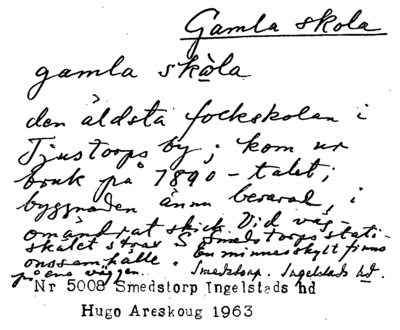 Gamla skola
gamla skola
den äldsta fockskolan i
Tjustorps by; kom ur
bruk på 1890-talet;
byggnaden ännu bevarad, i
oförändrat skick. Vid väg-
skälet strax S Smedstorps stati-
onssamhälle. En minnesskylt finns
på ena väggen. Smedstorp. Ingelstads hd.
Nr 5008 Smedstorp Ingelstads hd
Hugo Areskoug 1963